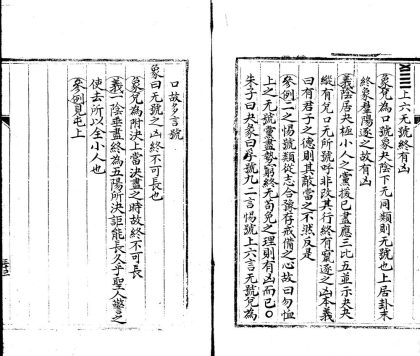 上六无號終有凶
象兌為口號象夬陰下无同類則无號也上居卦末
終象羣陽逐之故有凶
義陰居夬極小人之黨彼已盡應三比五並示夬夬
縱有兌口无所號呼非改其行終有竄逐之凶本義
曰有君子之德則其敵當之不然反是
參例二之惕號類從志合猶存戒備之心故曰勿恤
上之无號黨盡勢窮終无苟免之理則有凶而已○
朱子曰夬彖曰孚號九二言惕號上六言无號兌為
口故多言號
象曰无號之凶終不可長也
象兌為附決上當決盡之時故終不可長
義一陰垂盡終為五陽所決詎能長久乎聖人警之
使去所以全小人也
參例見屯上